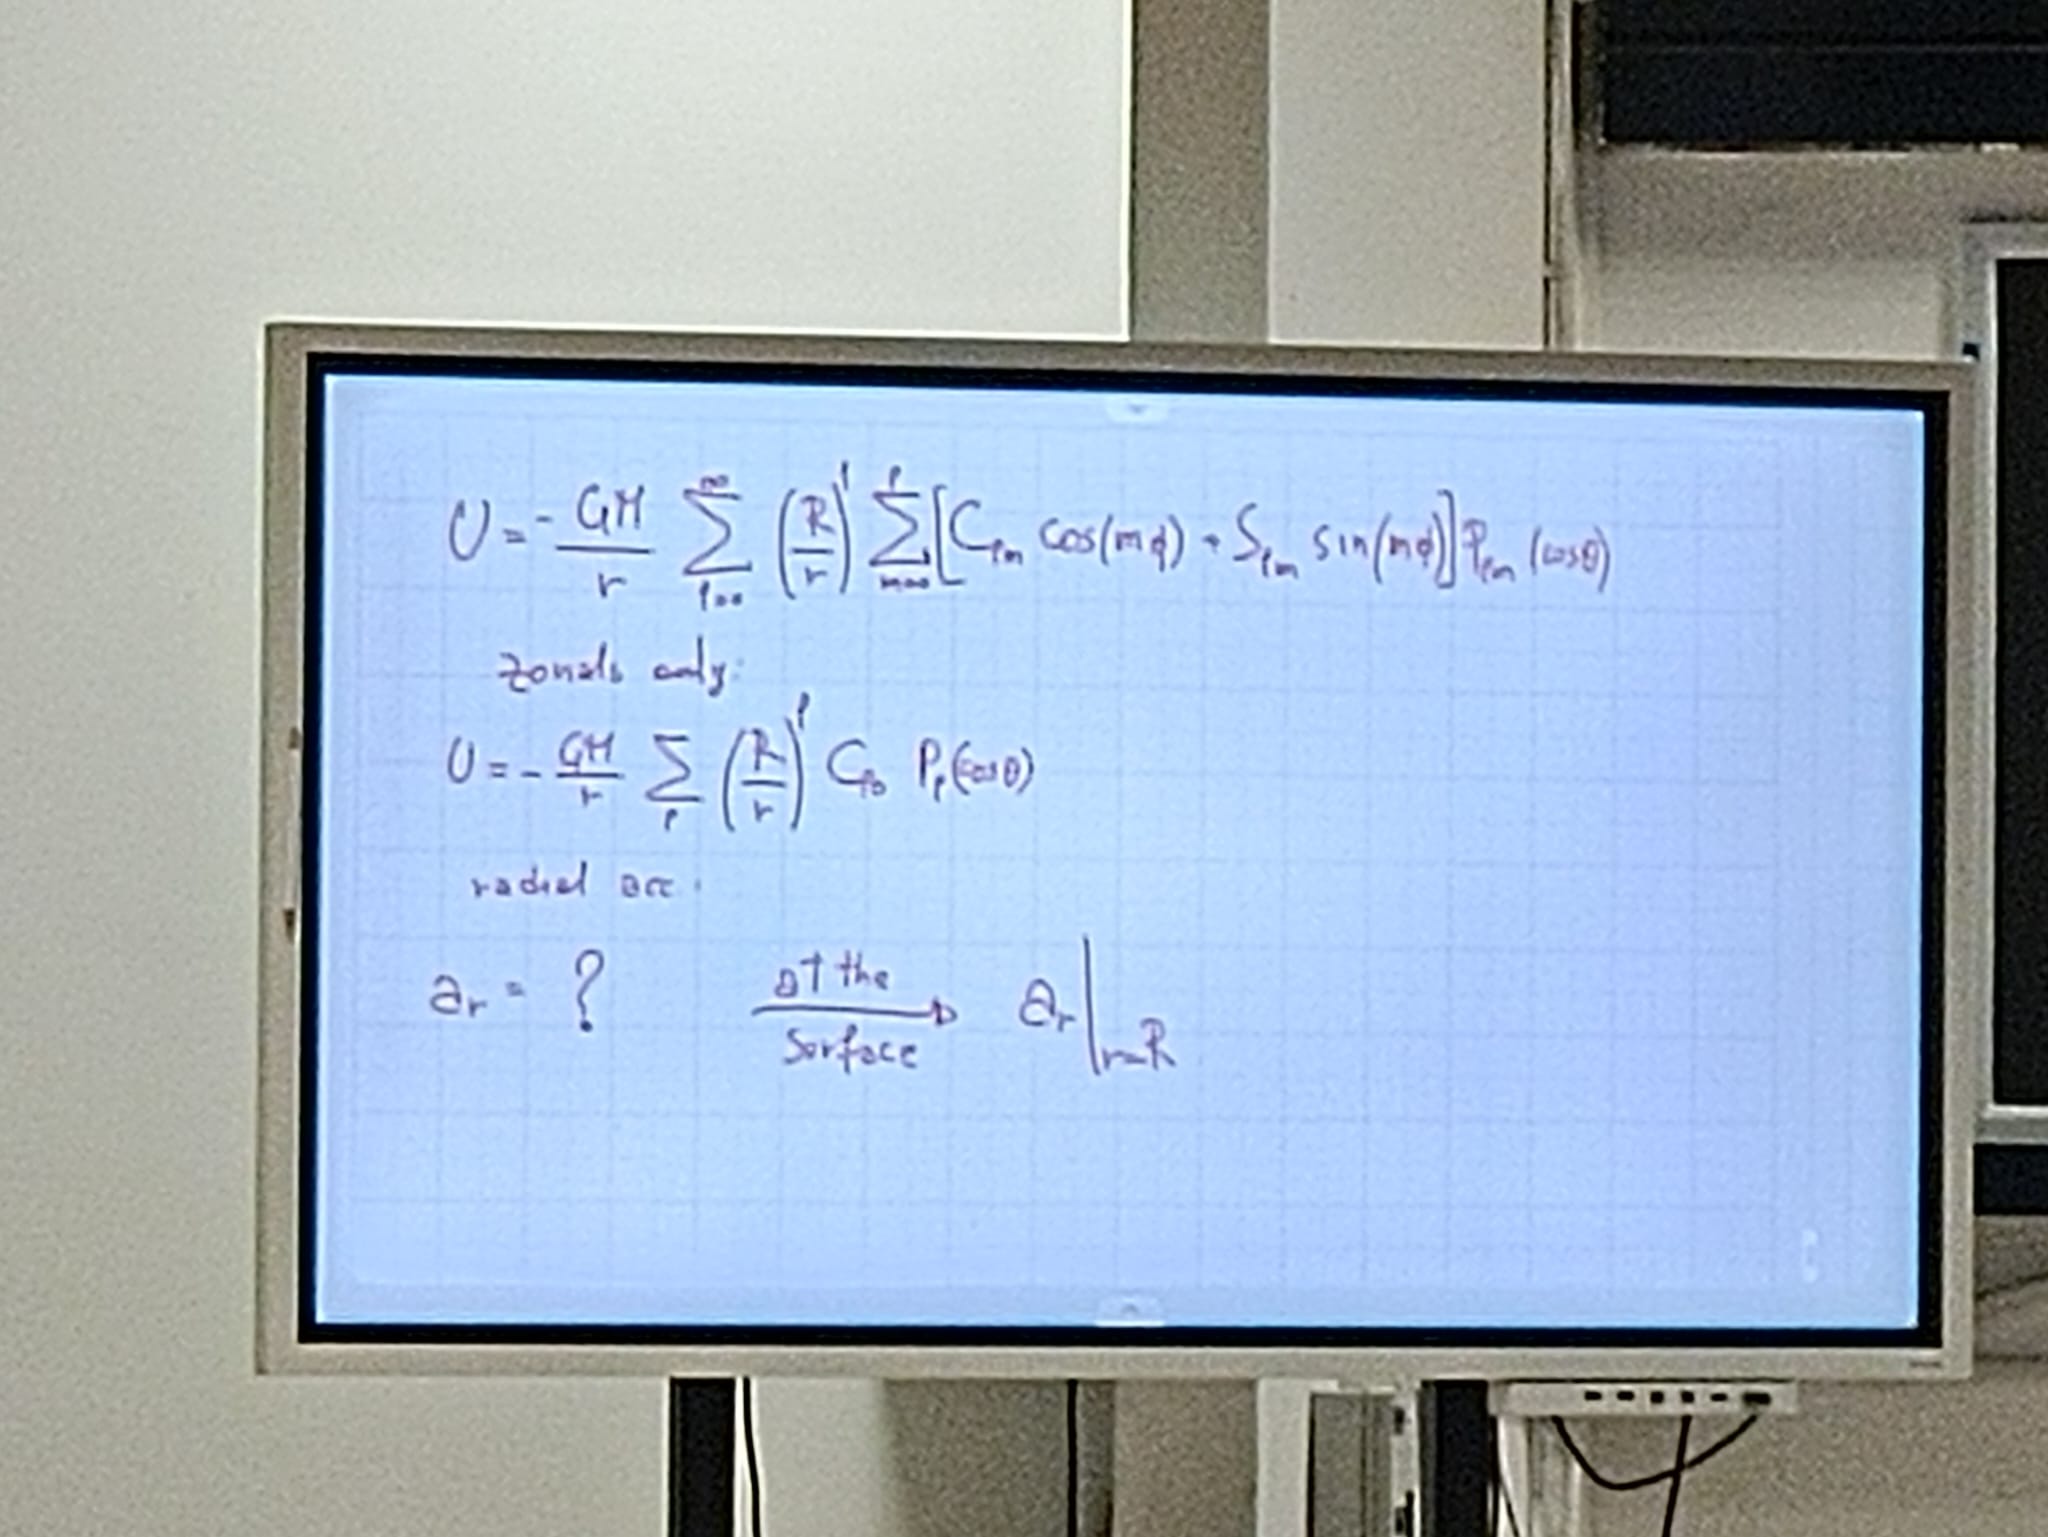 U = - GM/r ∑_{l=0}^{∞} (R/r)^l ∑_{m=0}^{l} [C_{lm} cos(mφ) + S_{lm} sin(mφ)] P_{lm} (cosθ)
zonals only:
U = - GM/r ∑_l (R/r)^l C_{l0} P_l(cosθ)
radial acc.
a_r = ? at the surface → a_r|_{r=R}